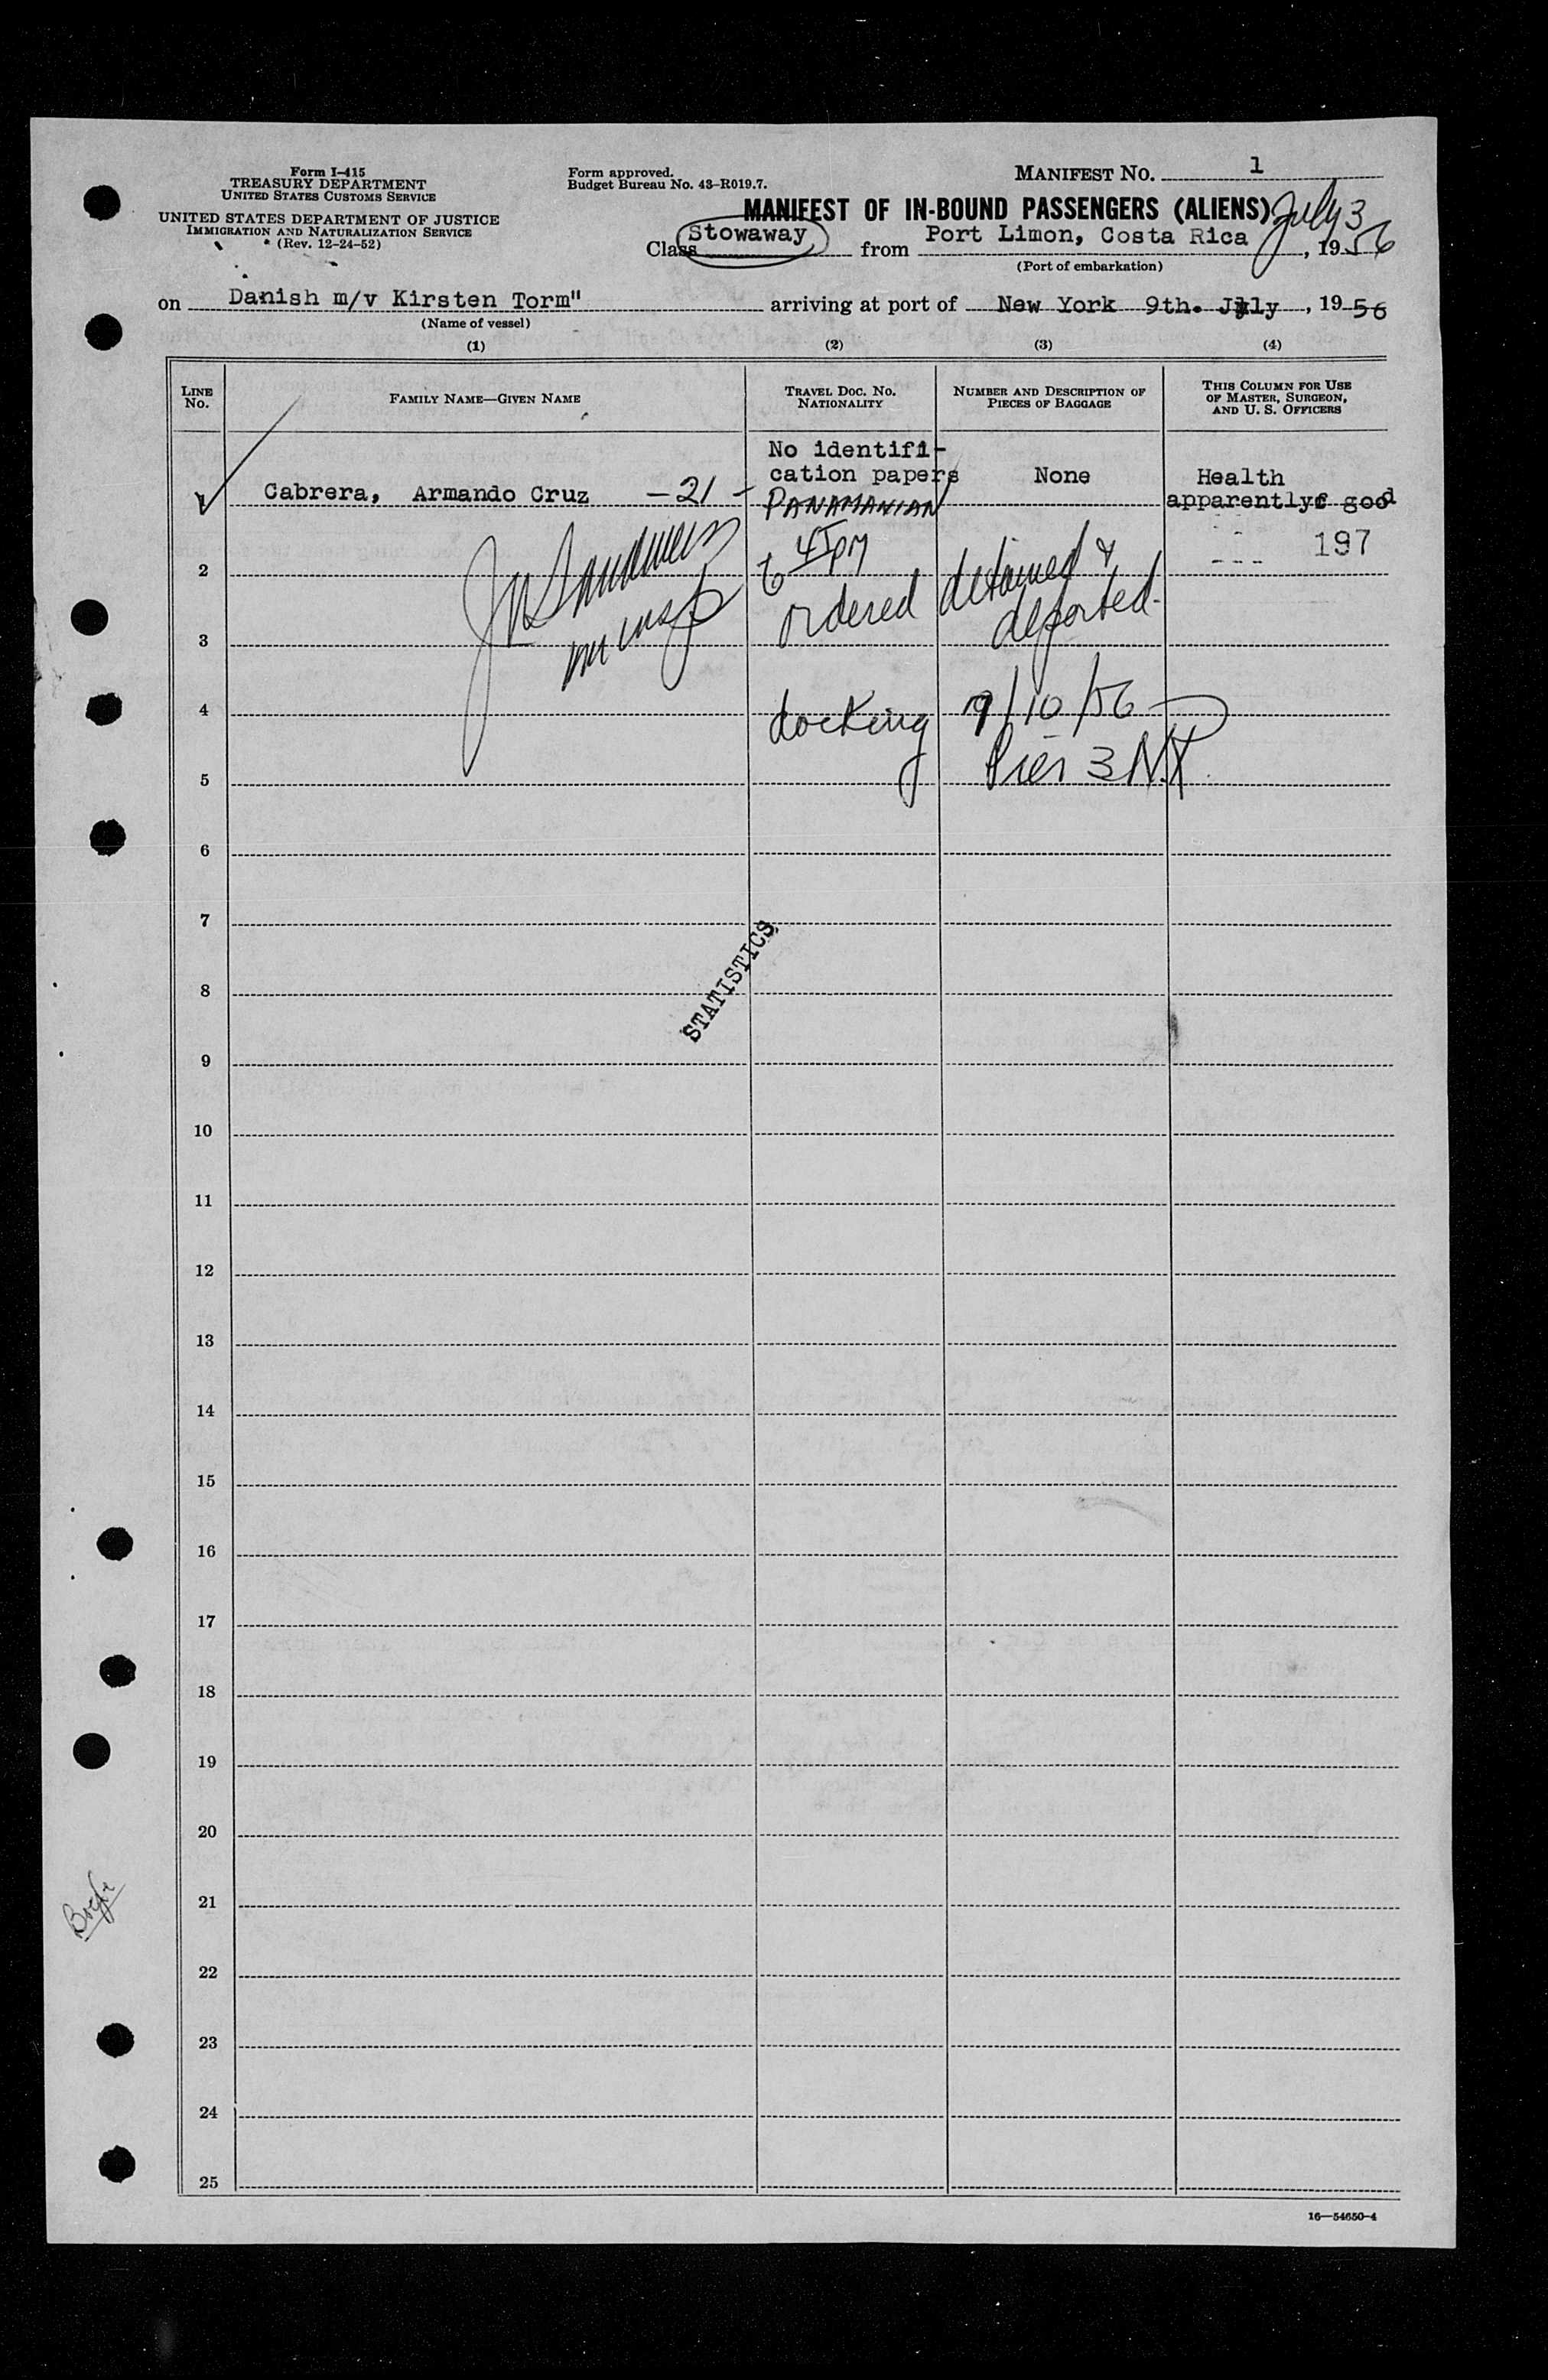 Form I-415
TREASURY DEPARTMENT
UNITED STATES CUSTOMS SERVICE
UNITED STATES DEPARTMENT OF JUSTICE
IMMIGRATION AND NATURALIZATION SERVICE
(Rev. 12-24-52)
Form approved.
Budget Bureau No. 43-R019.7.
MANIFEST NO. 1
MANIFEST OF IN-BOUND PASSENGERS (ALIENS)
Class Stowaway from Port Limon, Costa Rica July 3, 1956
(Port of embarkation)
on Danish m/v Kirsten Torm" arriving at port of New York 9th. July, 1956
(Name of vessel)
(1) (2) (3) (4)
LINE NO.
FAMILY NAME—GIVEN NAME
TRAVEL DOC. NO. NATIONALITY
NUMBER AND DESCRIPTION OF PIECES OF BAGGAGE
THIS COLUMN FOR USE OF MASTER, SURGEON, AND U. S. OFFICERS
1 Cabrera, Armando Cruz —21—
No identifi-
cation papers
PANAMANIAN
None
Health
apparently good
197
2
45 pm
3
ordered detained &
deported.
4
docking 9/10/56
5
Pier 3 N.Y.
6
7
STATISTICS
8
9
10
11
12
13
14
15
16
17
18
19
20
21
22
23
24
25
16—54650-4